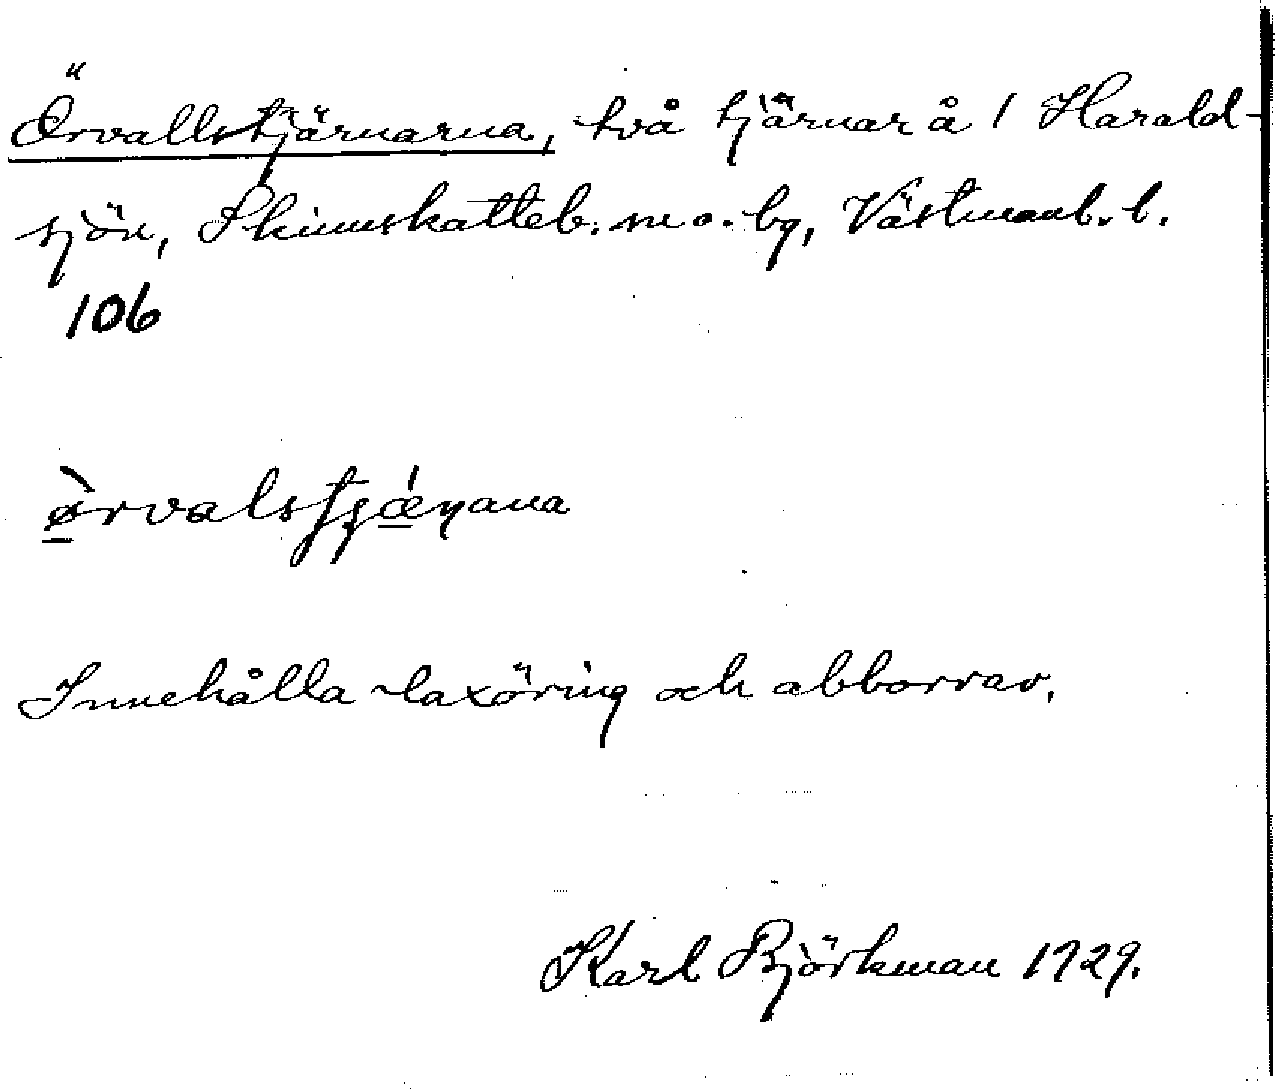 Örvallstjärnarna, två tjärnar å 1 Harald-
sjön, Skinnskatteb. sn o. bg, Västmanl. l.
106
Innehålla laxöring och abborrar.
Karl Björkman 1929.